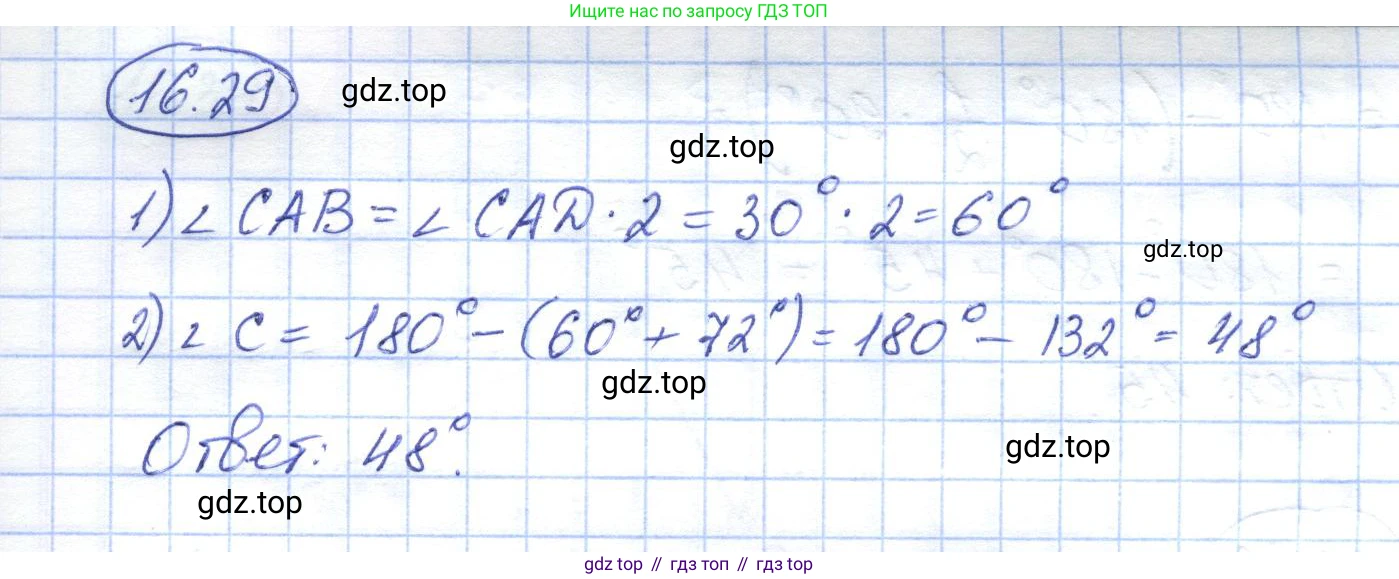 Ищите нас по запросу ГДЗ ТОП
16.29 gdz.top
gdz.top
1) ∠ CAB = ∠ CAD · 2 = 30° · 2 = 60°
gdz.top
2) ∠ C = 180° - (60° + 72°) = 180° - 132° = 48°
gdz.top
Ответ: 48°.
gdz.top
gdz.top
gdz top // гдз топ // гдз top